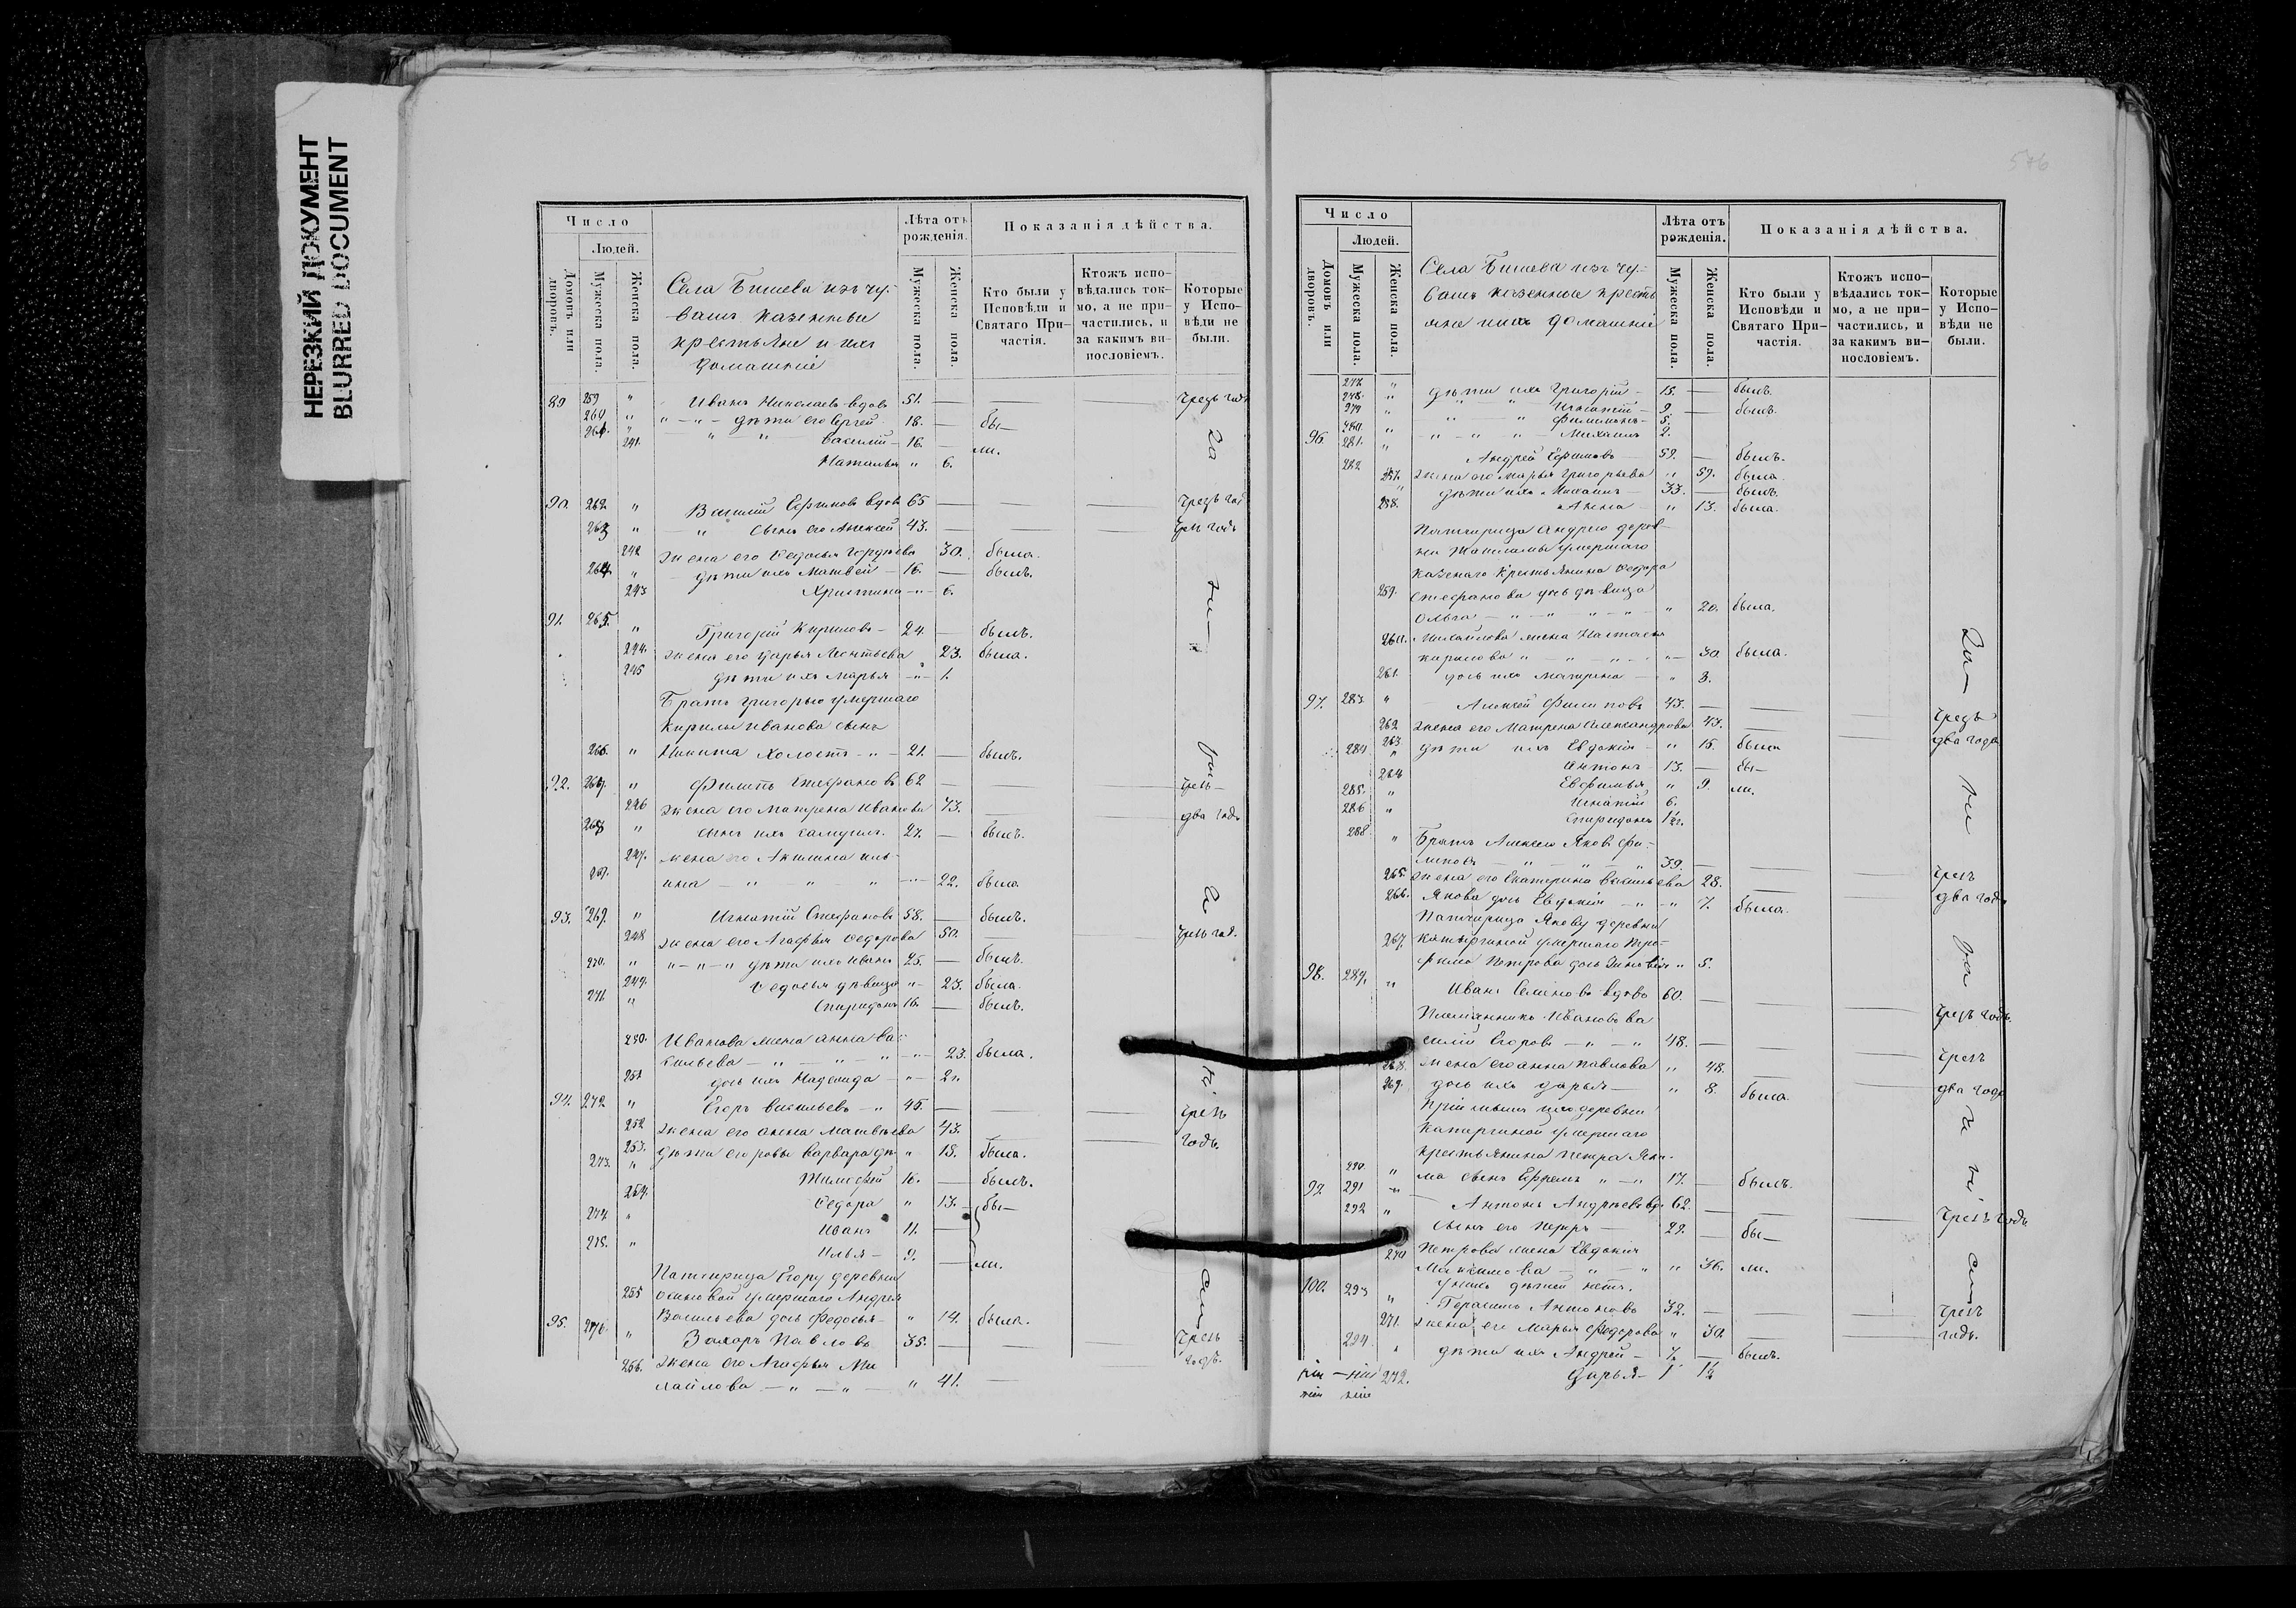 НЕРЕЗКИЙ ДОКУМЕНТ
BLURRED DOCUMENT
576
Число
Людей.
Домовъ или дворовъ.
Мужеска пола.
Женска пола.
Села Бишева изъ чу-
вашъ казенные
крестьяне и ихъ
домашніе
Лѣта отъ рожденія.
Мужеска пола.
Женска пола.
Показанія дѣйства.
Кто были у Исповѣди и Святаго При-частія.
Ктожъ испо-вѣдались ток-мо, а не при-частились, и за какимъ ви-нословіемъ.
Которые у Испо-вѣди не были.
89 259 " Иванъ Николаевъ вдовъ 51. — чрезъ годъ
260 " " — " — дѣти его Сергей 18. — бы—
261. " " " Василий — 16. — ли.
241. Наталья " 6.
90. 262 " Василий Ефимовъ вдовъ 65 — чрезъ год
263 " " сынъ его Алексей 43. — чрез годъ
242 жена его Федосья Гордѣева 30. была.
264. " дѣти ихъ Матвей — 16. — былъ.
243 Христина — " — 6.
91. 265. " Григорій Кириловъ — 24. — былъ.
244. жена его Дарья Леонтьева 23. была.
245 дѣти ихъ Марья — " — 1.
Братъ Григорью умершаго
Кирилы Иванова сынъ
266. " Никита холостъ — " — 21. — былъ.
92. 267. " Филипъ Стефановъ 62 — чрезъ
246 жена его Матрена Иванова 43. — два года
268 " сынъ ихъ Самуилъ. 27. — былъ.
247. жена его Акилина Иль-
ина — " — " — " — 22. была.
93. 269. " Игнатій Стефановъ 58. — былъ.
248 жена его Агафья Федорова 50. — чрезъ год.
270. " " — " — " дѣти ихъ Иванъ 25. — былъ.
249. Федосья дѣвица " — 23. была.
271. " Спиридонъ 16. — былъ.
250. Иванова жена Анна Ва-
сильева — " — " — " — 23. была.
251 дочь ихъ Надежда — " — 2.
94. 272 " Егоръ Васильевъ — " 45. — чрезъ
252 жена его Анна Матвѣева 43. — годъ.
253. дѣти Егоровы Варвара дѣ " 18. была.
273. " Тимофей 16. — былъ.
254. Федора " 13. — бы—
274 " Иванъ 11. —
275. " Илья — 9. — ли.
Патчирица Егору деревни
255 умершаго Андрея
Васильева дочь Федосья — " 14. была.
95. 276. " Захаръ Павловъ 35. — чрезъ
256. жена его Агафья Ми годъ.
хайлова — " — " — " 41. —
за
ни
ма
Число
Людей.
Домовъ или дворовъ.
Мужеска пола.
Женска пола.
Села Бишева изъ чу-
вашъ казенные кресть
яне и ихъ домашніе
Лѣта отъ рожденія.
Мужеска пола.
Женска пола.
Показанія дѣйства.
Кто были у Исповѣди и Святаго При-частія.
Ктожъ испо-вѣдались ток-мо, а не при-частились, и за какимъ ви-нословіемъ.
Которые у Испо-вѣди не были.
277 " дѣти ихъ Григорій — 15. — былъ.
278. " " " Игнатій — 9. — былъ.
279 " " " Филимонъ — 5.
280. " " — " — " — Михаилъ 2.
96. 281. " Андрей Ефимовъ — 59. — былъ.
257. жена его Марья Григорьева " 59. была.
282 " дѣти ихъ Михаилъ — 33. — былъ.
258. Анна — " 13. была.
Патчирица Андрею дерев-
ни умершаго
казенаго крестьянина Федора
259. Стефанова дочь дѣвица
Ольга — " — " — " — " 20. была.
260. Михайлова жена Настасья
Кирилова " — " — " — " — 30. была.
261. дочь ихъ Матрена — " 3.
97. 283. " Алексей Филиповъ 43. — чрезъ
262 жена его Матрена Александрова 43. — два года
263. дѣти ихъ Евдокія — " 15. была
284 " Антонъ — 13. — бы—
264 Евфимья " 9. ли.
285. " Игнатій 6.
286 " Спиридонъ
288 " Братъ Алексею Яковъ Фи-
липовъ — " — " — " 39. — чрезъ
265. жена его Екатерина Васильева 28. — два года
266. Якова дочь Евдокія — " — " 7. была.
Патчирица Якову деревни
267. умершаго
Петрова дочь Зиновія " 5.
98. 289. " Иванъ Семеновъ вдовъ 60. — чрезъ годъ.
Племянникъ Ивановъ Ва
силій Егоровъ — " — " 48. — чрезъ
268. жена его Анна Павлова " 48. — два года
269. дочь ихъ Дарья — " 8. была.
деревни
умершаго
крестьянина Петра Яки-
290. " ма сынъ Ефремъ " — " 17. — былъ.
99. 291 " Антонъ Андреевъ вд. 62. — чрезъ годъ
292 " сынъ его Петръ — 29. — бы—
270 Петрова жена Евдокія
Максимова — " — " " 36. ли.
у нихъ дѣтей нетъ.
100. 293 " Герасимъ Антоновъ 32. — чрезъ
271. жена его Марья Федорова " 30. — годъ.
294 " дѣти ихъ Андрей — 7. — былъ.
272. Дарья —